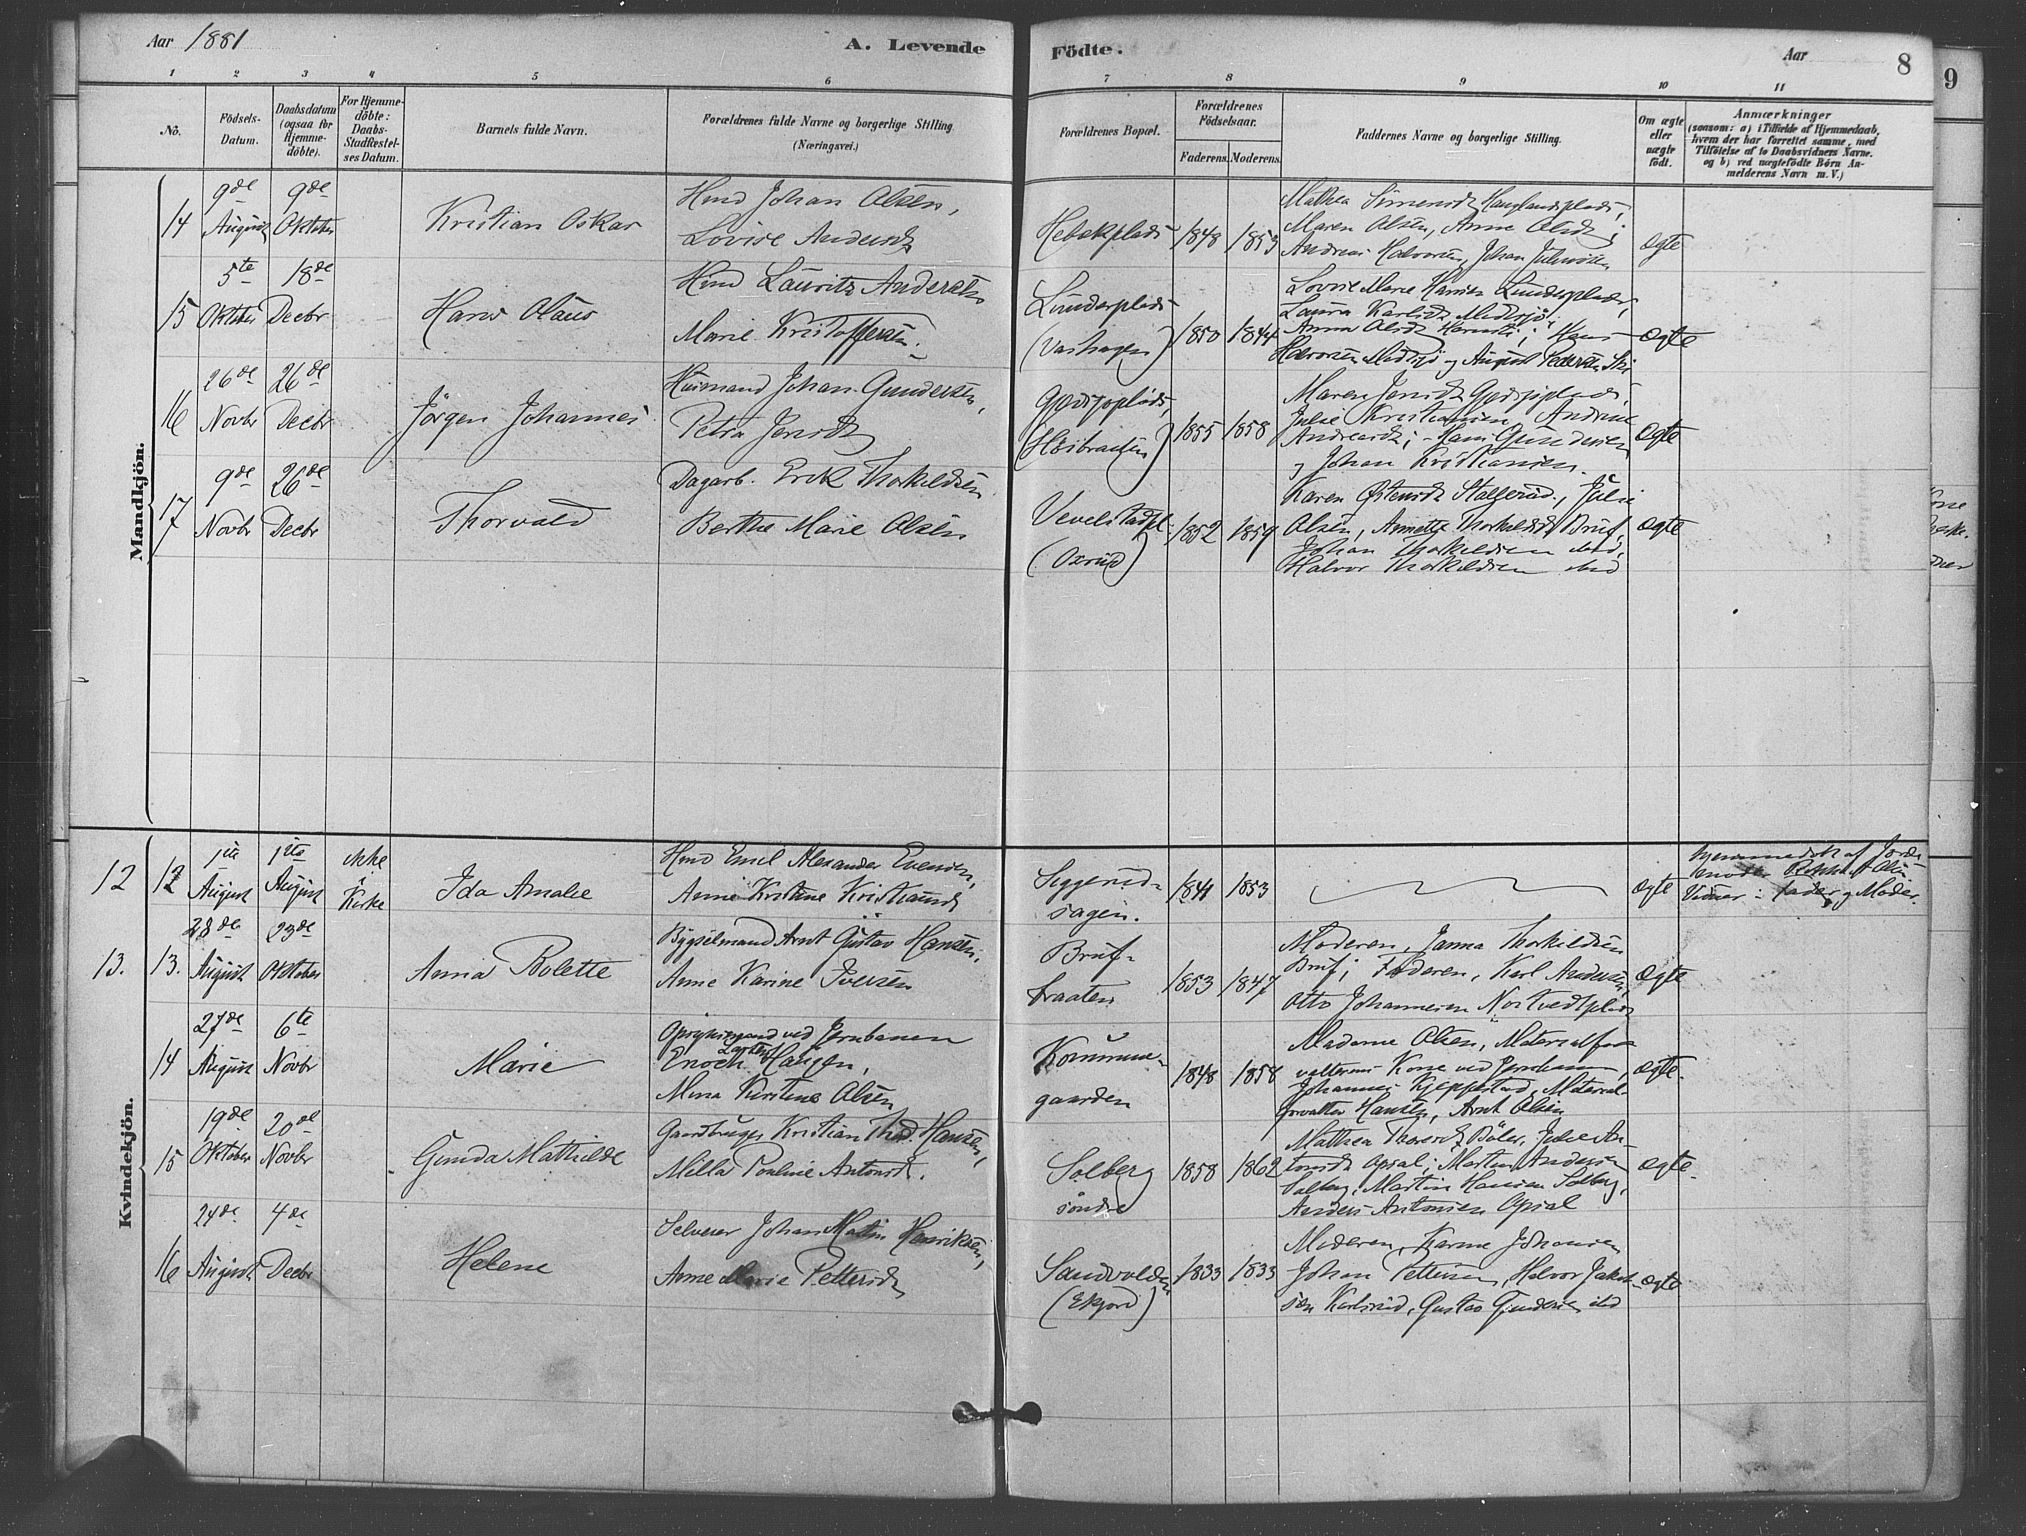 Aar 1881
A. Levende Födte.
Aar
8
9
1 2 3 4 5 6 7 8 9 10 11
No.
Födsels-Datum.
Daabsdatum (ogsaa for Hjemme-döbte).
For Hjemme-döbte: Daabs-Stadfæstel-ses Datum.
Barnets fulde Navn.
Forældrenes fulde Navne og borgerlige Stilling (Næringsvei.)
Forældrenes Bopæl.
Forældrenes Födselsaar.
Faderens. Moderens.
Faddernes Navne og borgerlige Stilling.
Om ægte eller uægte födt.
Anmærkninger
(saasom: a) i Tilfælde af Hjemmedaab,
hvem der har forrettet samme, med
Tilföielse af to Daabsvidners Navne.
og b) ved uægtefödte Börn An-
melderens Navn m. V.)
Mandkjön.
14
9de August
9de Oktober
Kristian Oskar
Hmd Johan Olsen,
Lovise Andersd.
Hebækplads
1848 1853
Mathea Simensd. Hauglandsplads,
Maren Olsen, Anne Olsd.;
Andreas Halvorsen, Johan
Ægte
15
5te Oktober
18de Decbr
Hans Olaus
Hmd Lauritz Andersen
Marie Kristoffersen.
Lunderplads
1850 1844
Lovise Marie Hansen Lunderplads,
Laura Karlsd. Midsjø,
Anna Olsd. ; Hans
Halvorsen Midsjø og August Pedersen Ski
Ægte
16
26de Novbr
26de Decbr
Jörgen Johannes
Husmand Johan Gundersen,
Petra Jensd.
Gjedsjøplads,
(Höibraaten)
1855 1858
Maren Jensd. Gjedsjøplads,
Julie Kristiansen, Andrine
Andreasd.; Hans Gundersen
og Johan Kristiansen.
Ægte
17
9de Novbr
26de Decbr
Thorvald
Dagarb. Erik Thorkildsen
Berthe Marie Olsen
Vevelstadpl.
(Oxrud)
1852 1859
Karen Østensd. Stallerud, Julie
Olsen, Annette Thorkildsd. Bruf.,
Johan Thorkildsen ibid,
Halvor Thorkildsen ibid
Ægte
Kvindekjön.
12 12
1ste August
1ste August
ikke i Kirke
Ida Amalie
Hmd Emil Alexander Evensen,
Anne Kristine Kristiansd.
Siggerud-
sagen.
1841 1853
Ægte
hjemmedöbt af Jorde-
moder Olsen.
Vidner: Fader og Moder.
13. 13.
28de August
23de Oktober
Anna Bolette
Bygselmand Arnt Gustav Hansen,
Anne Karine Iversen
Bruf-
braaten
1853 1847
Moderen, Janna Thorkildsen
Bruf; Faderen, Karl Andersen,
Otto Johannesen Nordtvedtplads
Ægte
14
27de August
6te Novbr
Marie
Opsynsmand ved Jernbanen
Enoch Larsen Haugen,
Mina Kirstine Olsen
Kommune-
gaarden
1848 1858
Madame Olsen, Materialfor-
valterens Kone ved Jernbanen,
Johannes Kjeppestad, Material-
forvalter Hansen, Arnt Olsen
Ægte.
15
19de Oktober
20de Novbr
Gunda Mathilde
Gaardbruger Kristian Thod. Hansen,
Milla Pouline Antonsd.
Solberg
søndre
1858 1862
Mathea Thoresd. Böler, Julie An-
tonsd. Opsal; Martin Andersen
Solberg, Martin Hansen Solberg,
Anders Antonsen Opsal
Ægte.
16
24de August
4de Decbr
Helene
Selveier Johan Martin Henriksen,
Anne Marie Pettersd.
Sandvolden
(Ekjord)
1833 1835
Moderen, Karine Johansen
Johan Pettersen, Halvor Jakob-
sen Karlsrud, Gustav Gundersen ibid
Ægte